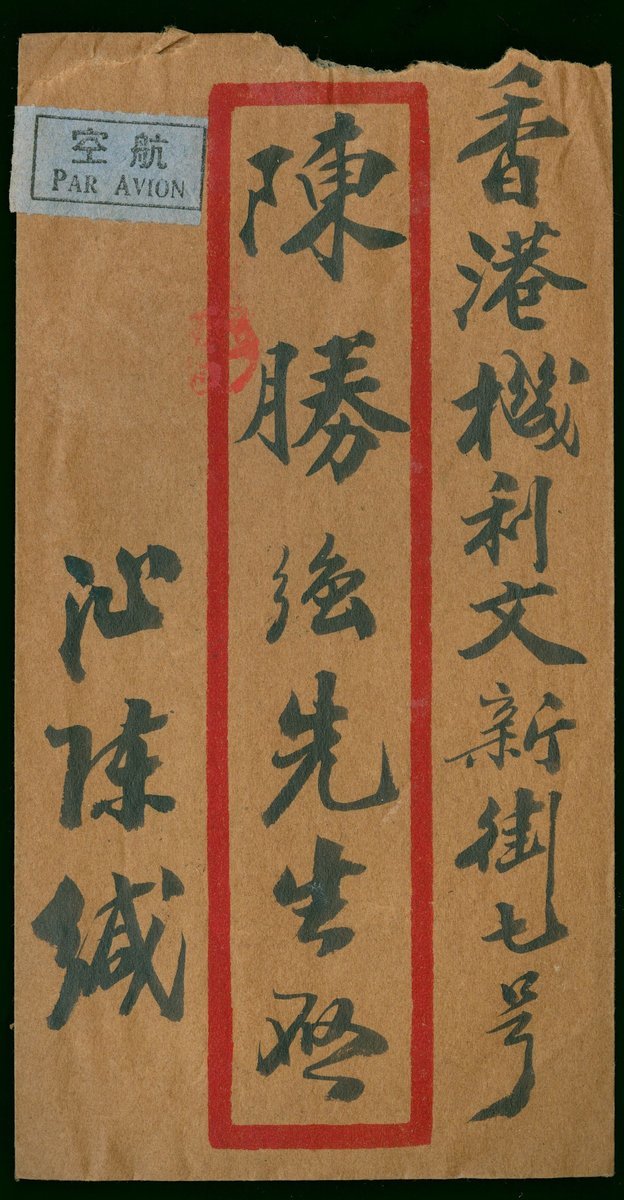 香港機利文新街七号
陳勝強先生啓
汕陳緘
航空
PAR AVION